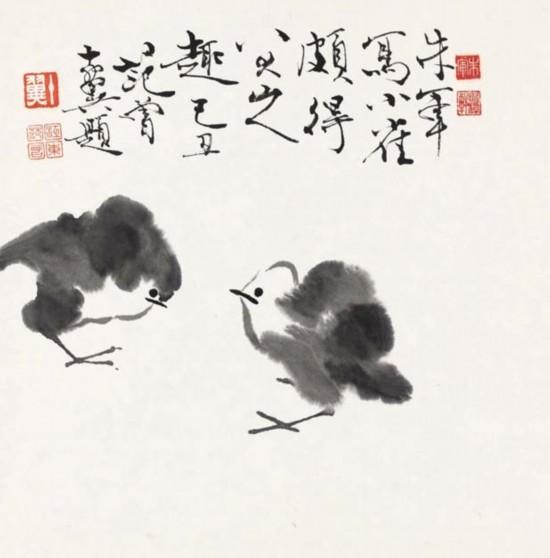 朱軍
寫小雀
頗得
八大之
趣己丑
范曾
十翼題